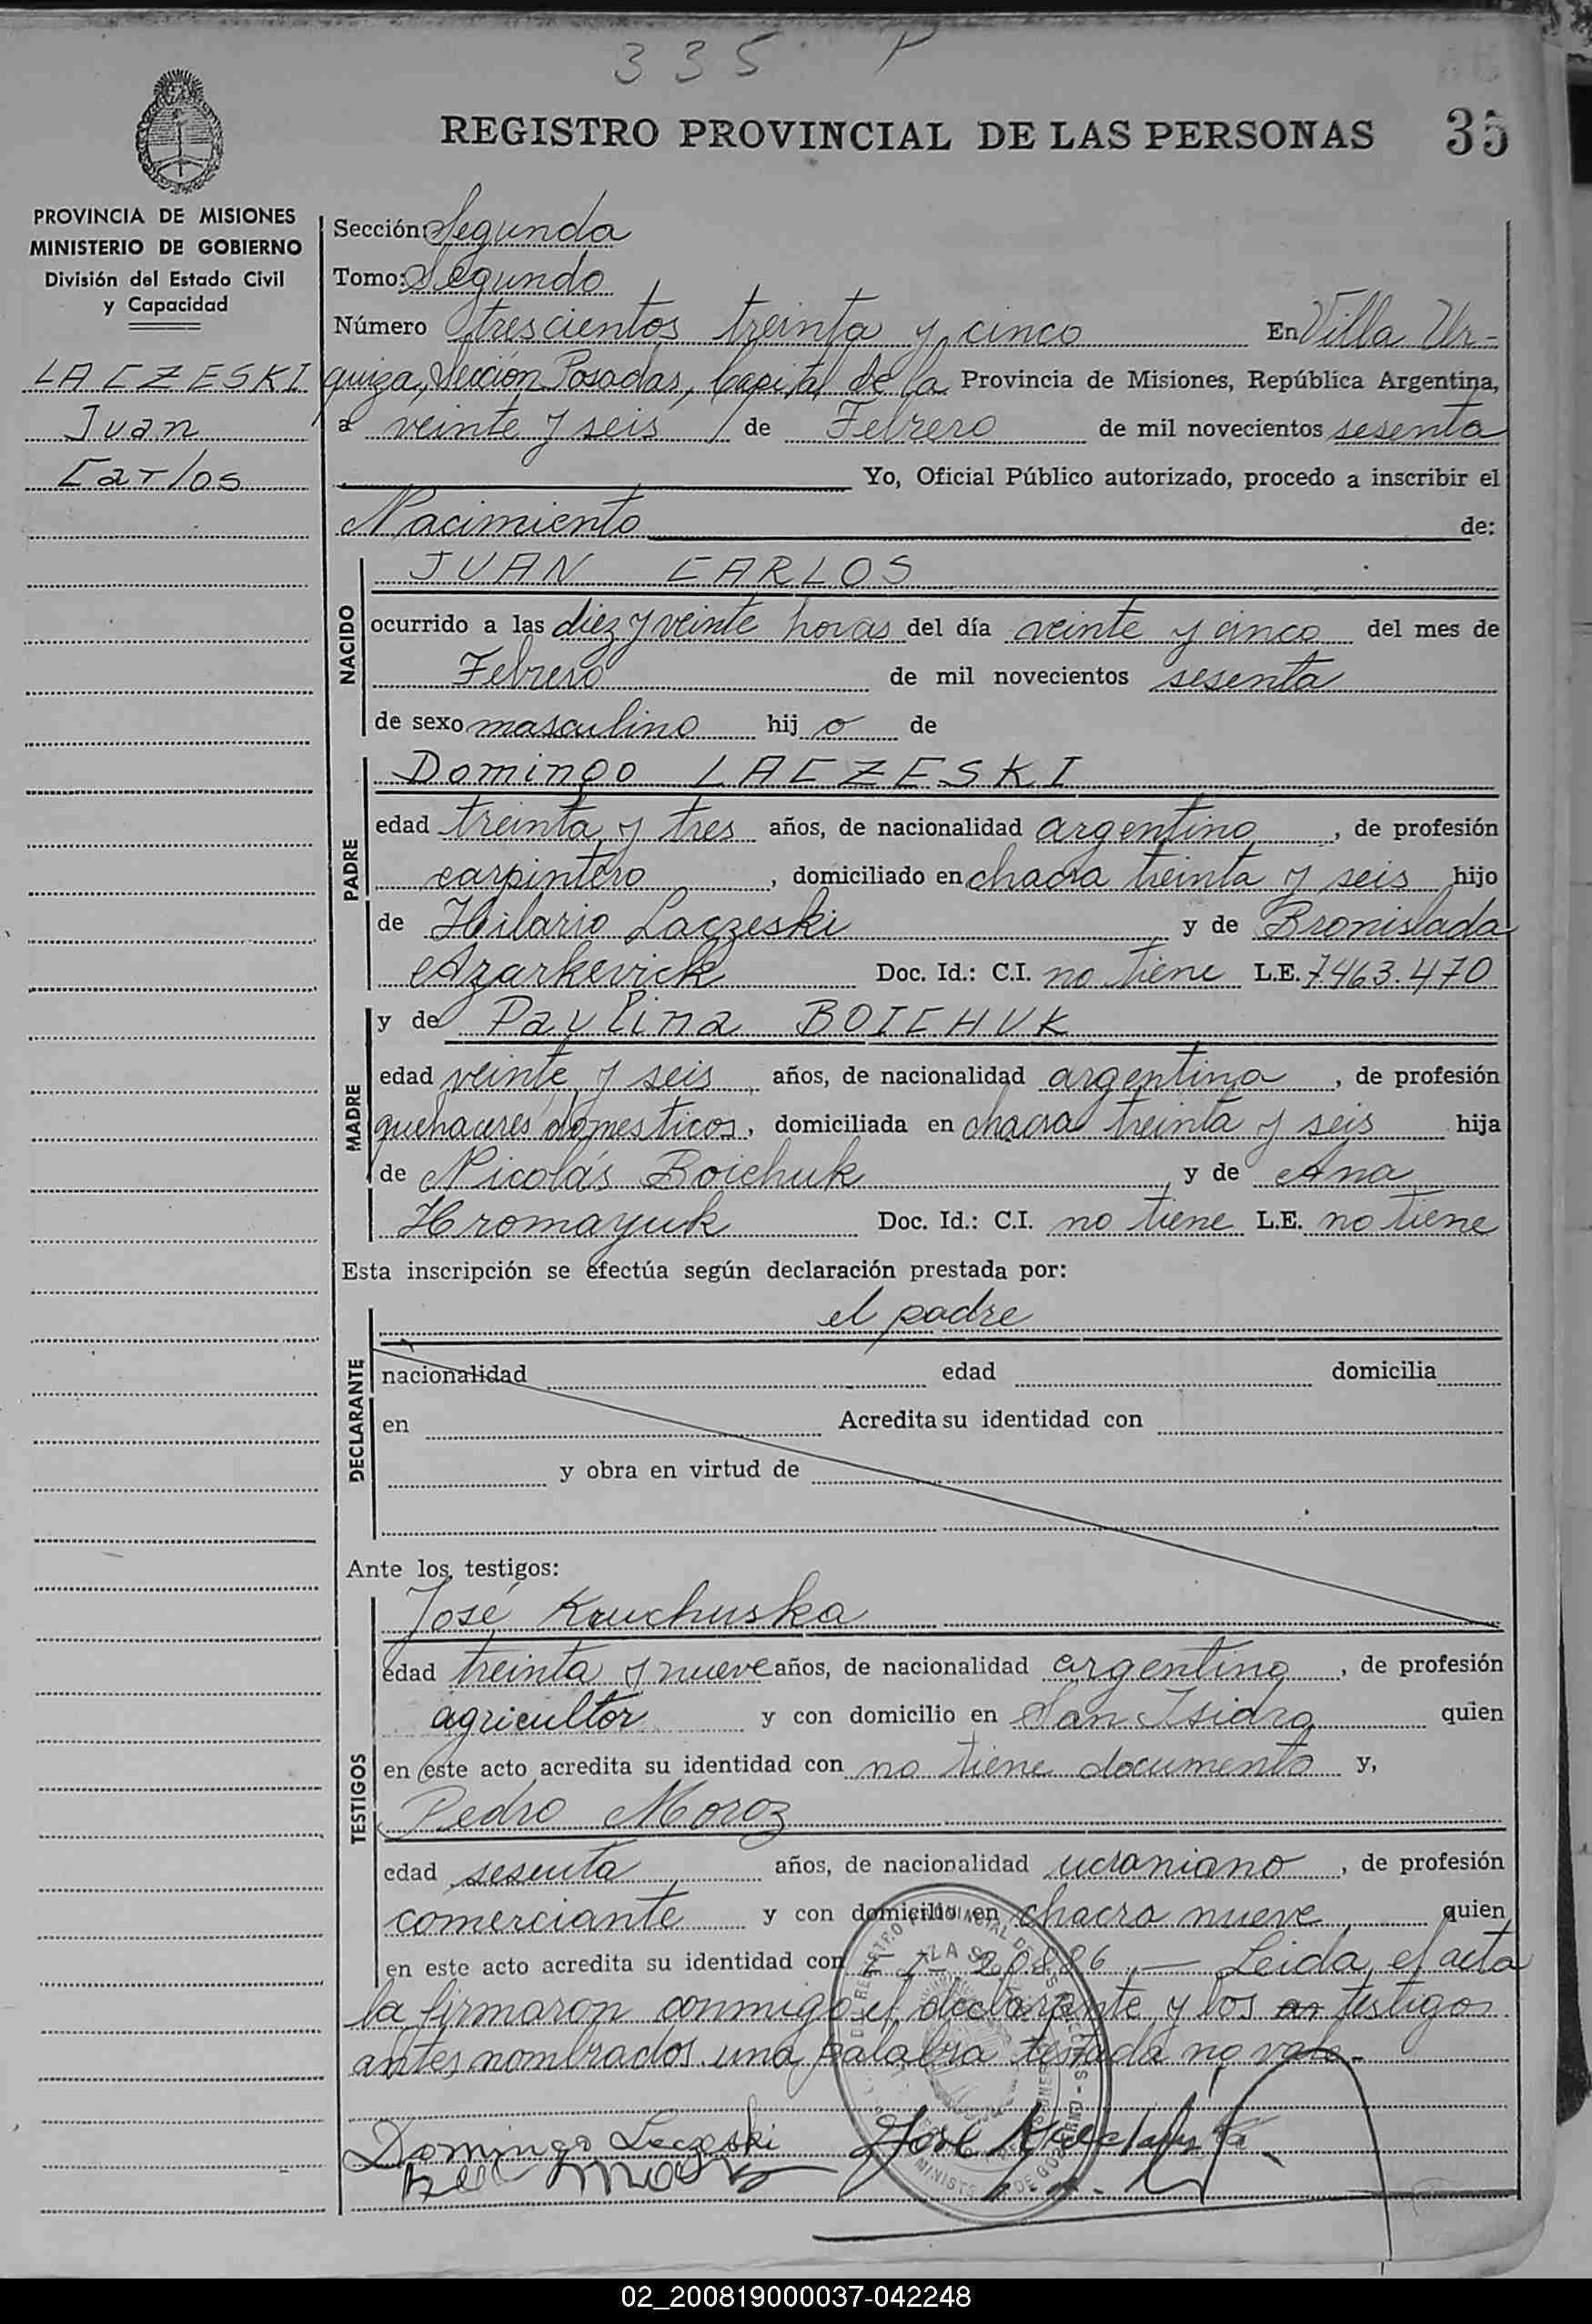 335 P
REGISTRO PROVINCIAL DE LAS PERSONAS 35
PROVINCIA DE MISIONES
MINISTERIO DE GOBIERNO
División del Estado Civil
y Capacidad
LACZESKI
Juan
Carlos
Sección: Segunda
Tomo: Segundo
Número trescientos treinta y cinco En Villa Ur-
quiza, Sección Posadas, Capital de la Provincia de Misiones, República Argentina,
a veinte y seis de Febrero de mil novecientos sesenta
Yo, Oficial Público autorizado, procedo a inscribir el
Nacimiento de:
NACIDO
JUAN CARLOS
ocurrido a las diez y veinte horas del día veinte y cinco del mes de
Febrero de mil novecientos sesenta
de sexo masculino hij o de
PADRE
Domingo LACZESKI
edad treinta y tres años, de nacionalidad argentino, de profesión
carpintero, domiciliado en chacra treinta y seis hijo
de Hilario Laczeski y de Bronislada
Azarkevick Doc. Id.: C.I. no tiene L.E. 7.463.470
MADRE
y de Paulina BOICHUK
edad veinte y seis años, de nacionalidad argentina, de profesión
quehaceres domesticos, domiciliada en chacra treinta y seis hija
de Nicolás Boichuk y de Ana
Hromayuk Doc. Id.: C.I. no tiene L.E. no tiene
Esta inscripción se efectúa según declaración prestada por:
DECLARANTE
el padre
nacionalidad edad domicilia
en Acredita su identidad con
y obra en virtud de
Ante los testigos:
TESTIGOS
José Kruchuska
edad treinta y nueve años, de nacionalidad argentino, de profesión
agricultor y con domicilio en San Isidro quien
en este acto acredita su identidad con no tiene documento y,
Pedro Moroz
edad sesenta años, de nacionalidad ucraniano, de profesión
comerciante y con domicilio en chacra nueve quien
en este acto acredita su identidad con 20886.- Leida el acta
la firmaron conmigo el declarante y los testigos
antes nombrados una palabra testada no vale.-
Domingo Laczeski José
02_200819000037-042248